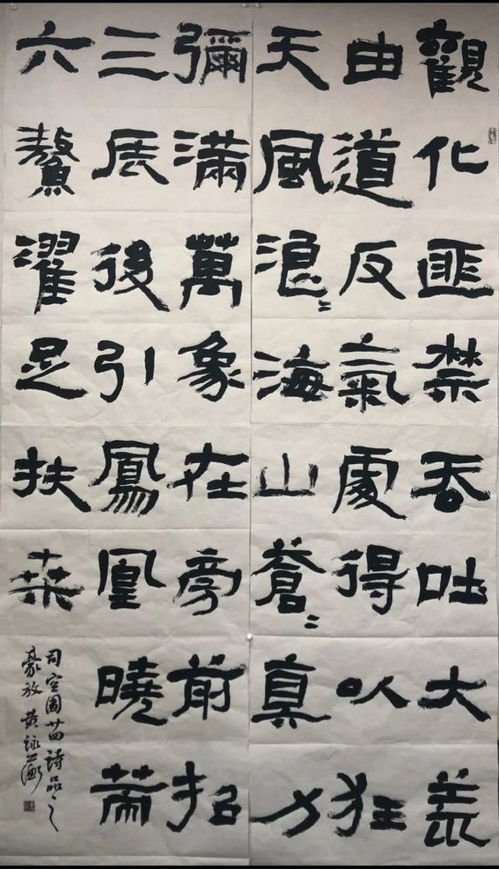 觀化匪禁吞吐大荒
由道反氣處得以狂
天風浪〻海山蒼〻真力
彌滿萬象在旁前招
三辰後引鳳凰曉策
六鰲濯足扶桒
司空圖廿四詩品之
豪放 黄詠